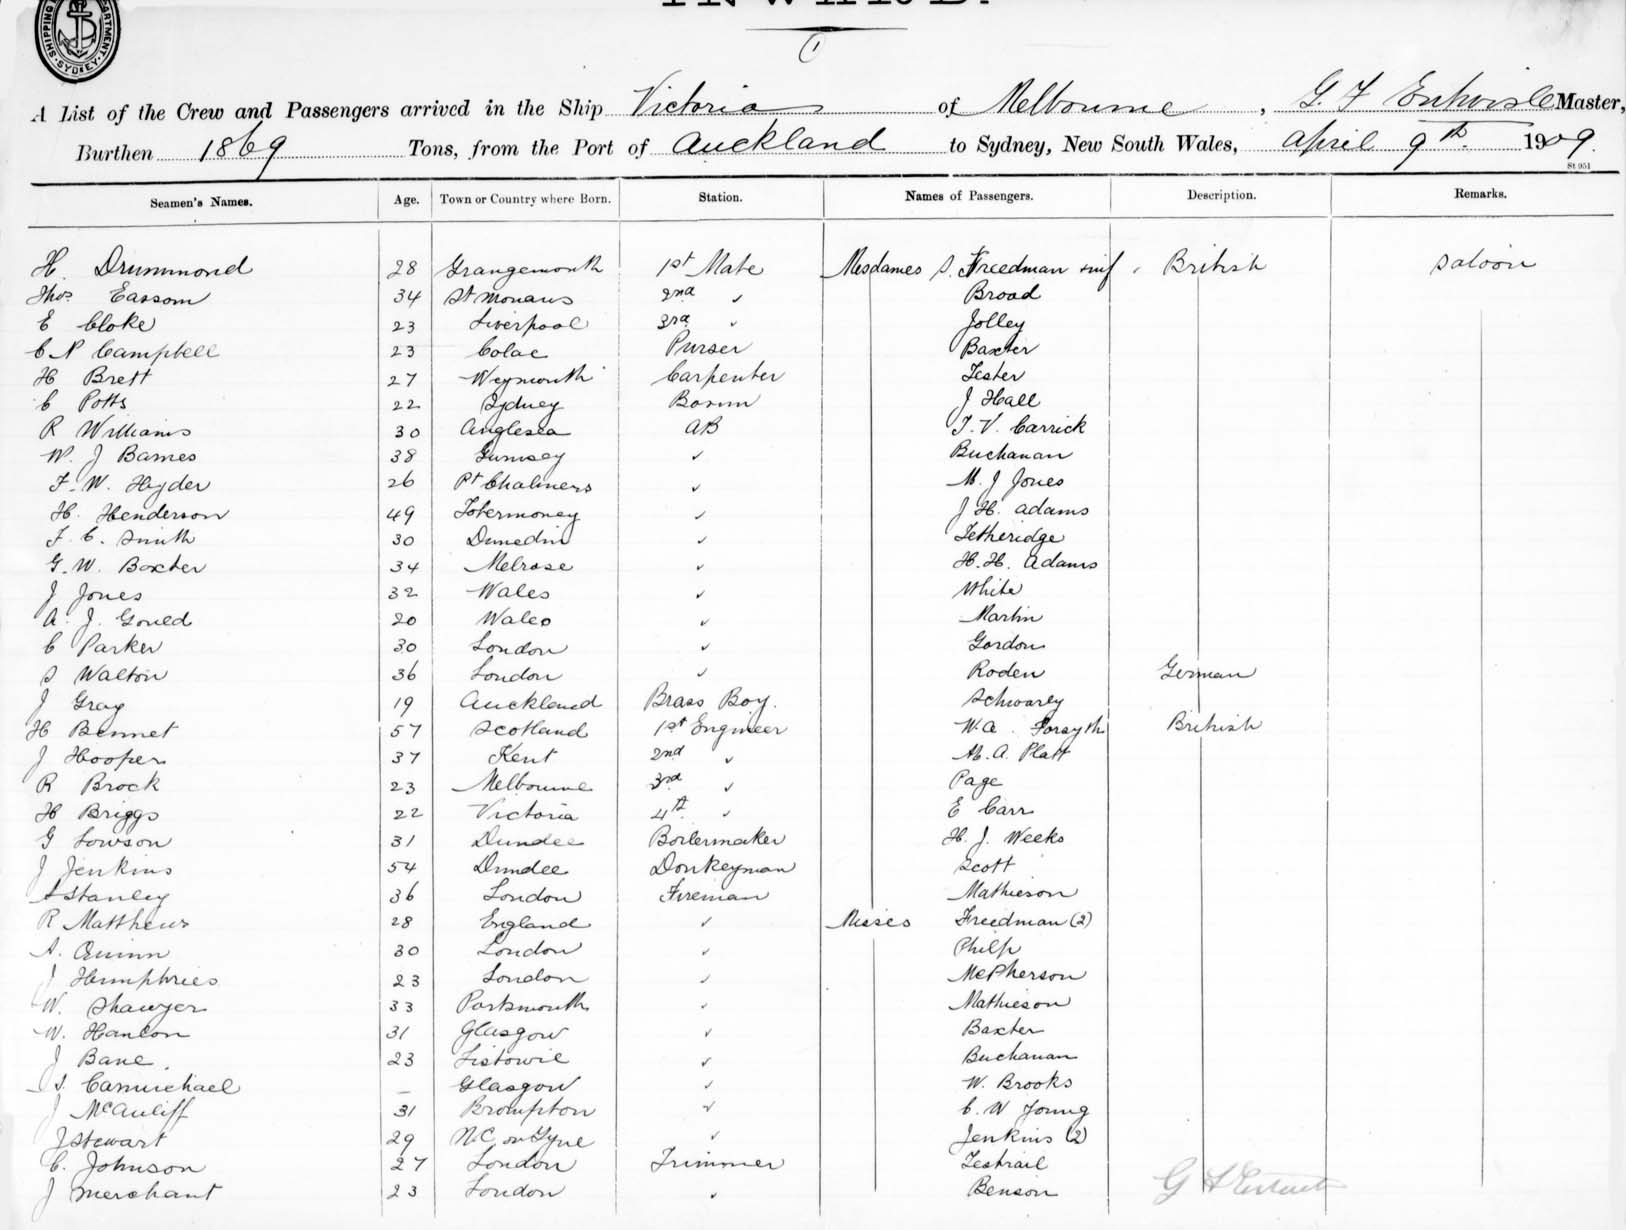 SHIPPING DEPARTMENT SYDNEY
INWARD.
A List of the Crew and Passengers arrived in the Ship Victoria of Melbourne, G. F Entwisle Master,
Burthen 1869 Tons, from the Port of Auckland to Sydney, New South Wales, April 9th. 1909.
St 951
Seamen's Names. Age. Town or Country where Born. Station. Names of Passengers. Description. Remarks.
H. Drummond 28 Grangemouth 1st Mate Mesdames S. Freedman British Saloon
Thos Eassom 34 St Monans 2nd " Broad
E Cloke 23 Liverpool 3rd " Jolley
C N Campbell 23 Colac Purser Baxter
H Brett 27 Weymouth Carpenter Lester
C Potts 22 Sydney Bosun J Hall
R Williams 30 Anglesea AB T. V. Carrick
W. J Barnes 38 Gurnsey " Buchanan
F. W. Hyder 26 Pt Chalmers " M. J Jones
H. Henderson 49 Tobermoney " J H. Adams
F. C. Smith 30 Dunedin " Tetheridge
G. W. Baxter 34 Melrose " H. H. Adams
J Jones 32 Wales " White
A. J. Gould 20 Wales " Martin
C Parker 30 London " Gordon
S Walton 36 London " Roden German
J Gray 19 Auckland Brass Boy.
H Bennet 57 Scotland 1st Engineer W. A. Forsyth British
J Hooper 37 Kent 2nd " M. A. Platt
R Brock 23 Melbourne 3rd " Page
H Briggs 22 Victoria 4th " E Carr
G Lowson 31 Dundee Boilermaker H. J. Weeks
J Jenkins 54 Dundee Donkeyman Scott
A Stanley 36 London Fireman Mathieson
R Matthews 28 England " Misses Freedman (2)
A. Quinn 30 London " Philp
J Humphries 23 London " McPherson
W. Shawyer 33 Portsmouth " Mathieson
W. Hanlon 31 Glasgow " Baxter
J Bane. 23 Listowil " Buchanan
S. Carmichael — Glasgow " W. Brooks
J McAuliff 31 Brompton " C. W Young
J Stewart 29 N.C. on Tyne " Jenkins (2)
C. Johnson 27 London Trimmer Testrail
J Merchant 23 London " Benson